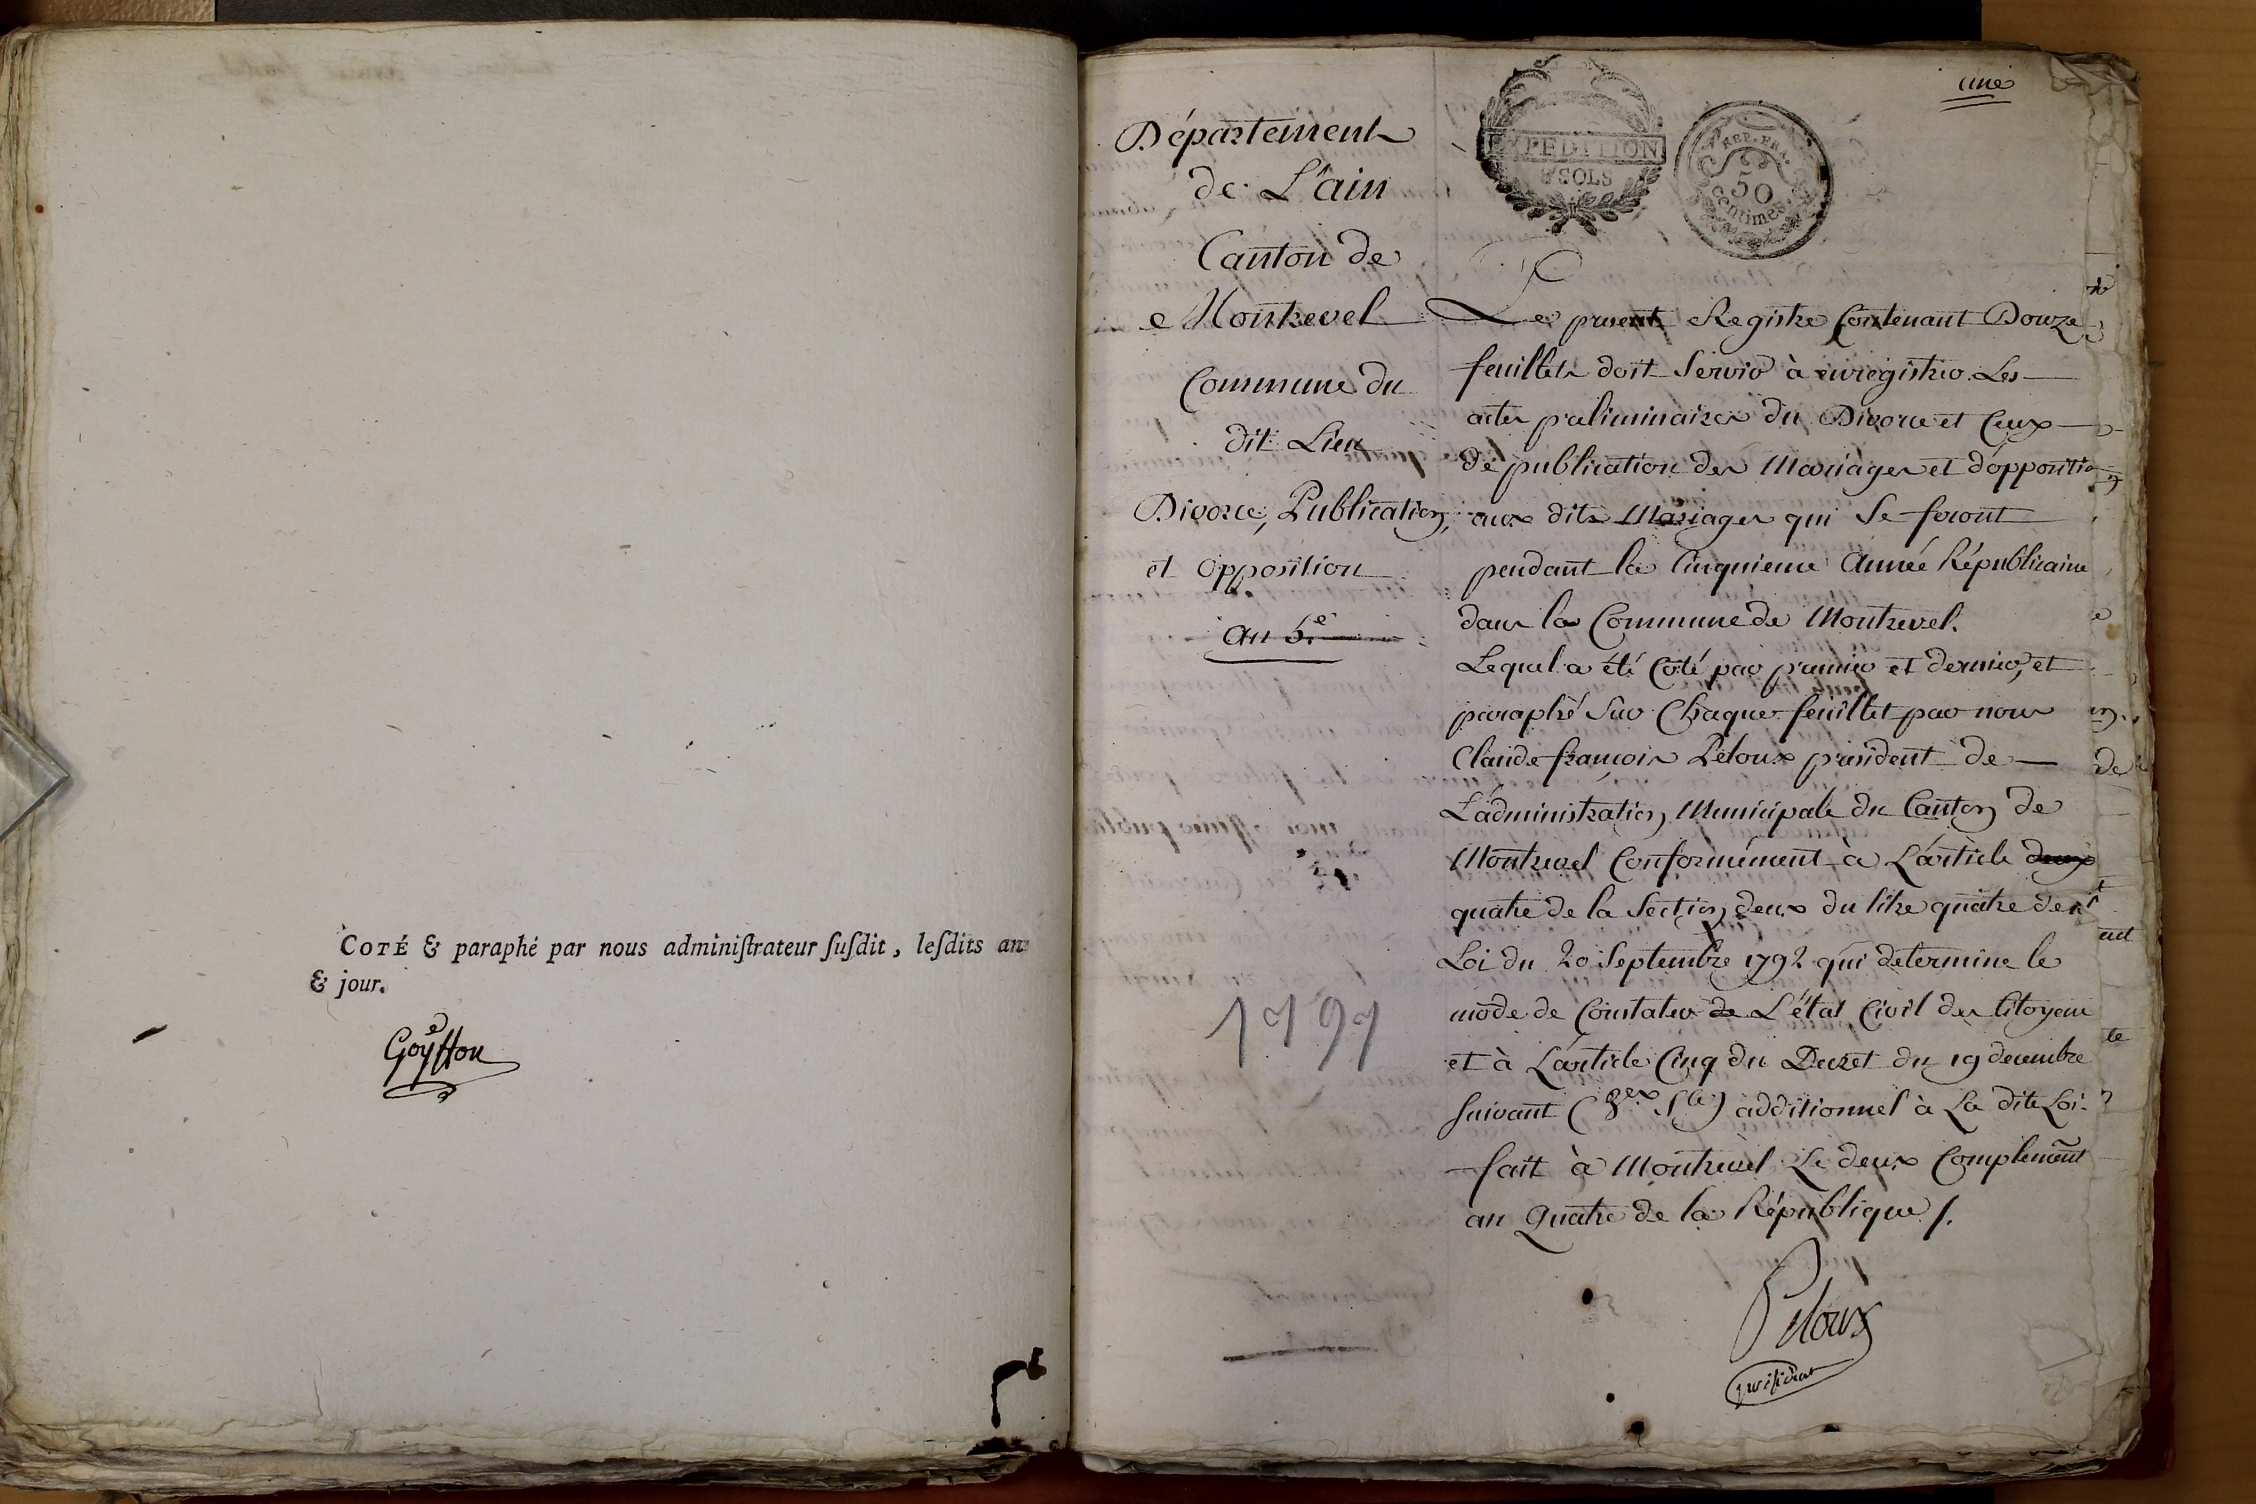 COTÉ & paraphé par nous adminiſtrateur ſuſdit, leſdits an
& jour.
Goyffon
une
EXPEDITION
8 SOLS
REP. FRA.
50
centimes
Département
de L'ain
Canton de
Montrevel
Commune du
dit Lieu
Divorce, Publication,
et Opposition
an 5.e
1797
Le present Registre Contenant Douze
feuillets doit Servir à enregistrer Les
actes préliminaires du Divorce et Ceux
de publication des Mariages et d'opposition
aux dits Mariages qui Se feront
pendant la Cinquieme Année Républicaine
dans la Commune de Montrevel.
Lequel a été Coté par premier et dernier, et
paraphé Sur Chaque feuillet par nous
Claude françois Peloux président de
L'administration Municipale du Canton de
Montrevel Conformément à L'article deux
quatre de la Section deux du titre quatre de
Loi du 20 Septembre 1792 qui determine le
mode de Constater de L'état Civil des Citoyens
et à L'article Cinq du Decret du 19 decembre
Suivant (Vex Sle) additionnel à La dite Loi.
fait à Montrevel Le deux Complément
an Quatre de la République /.
Peloux
président